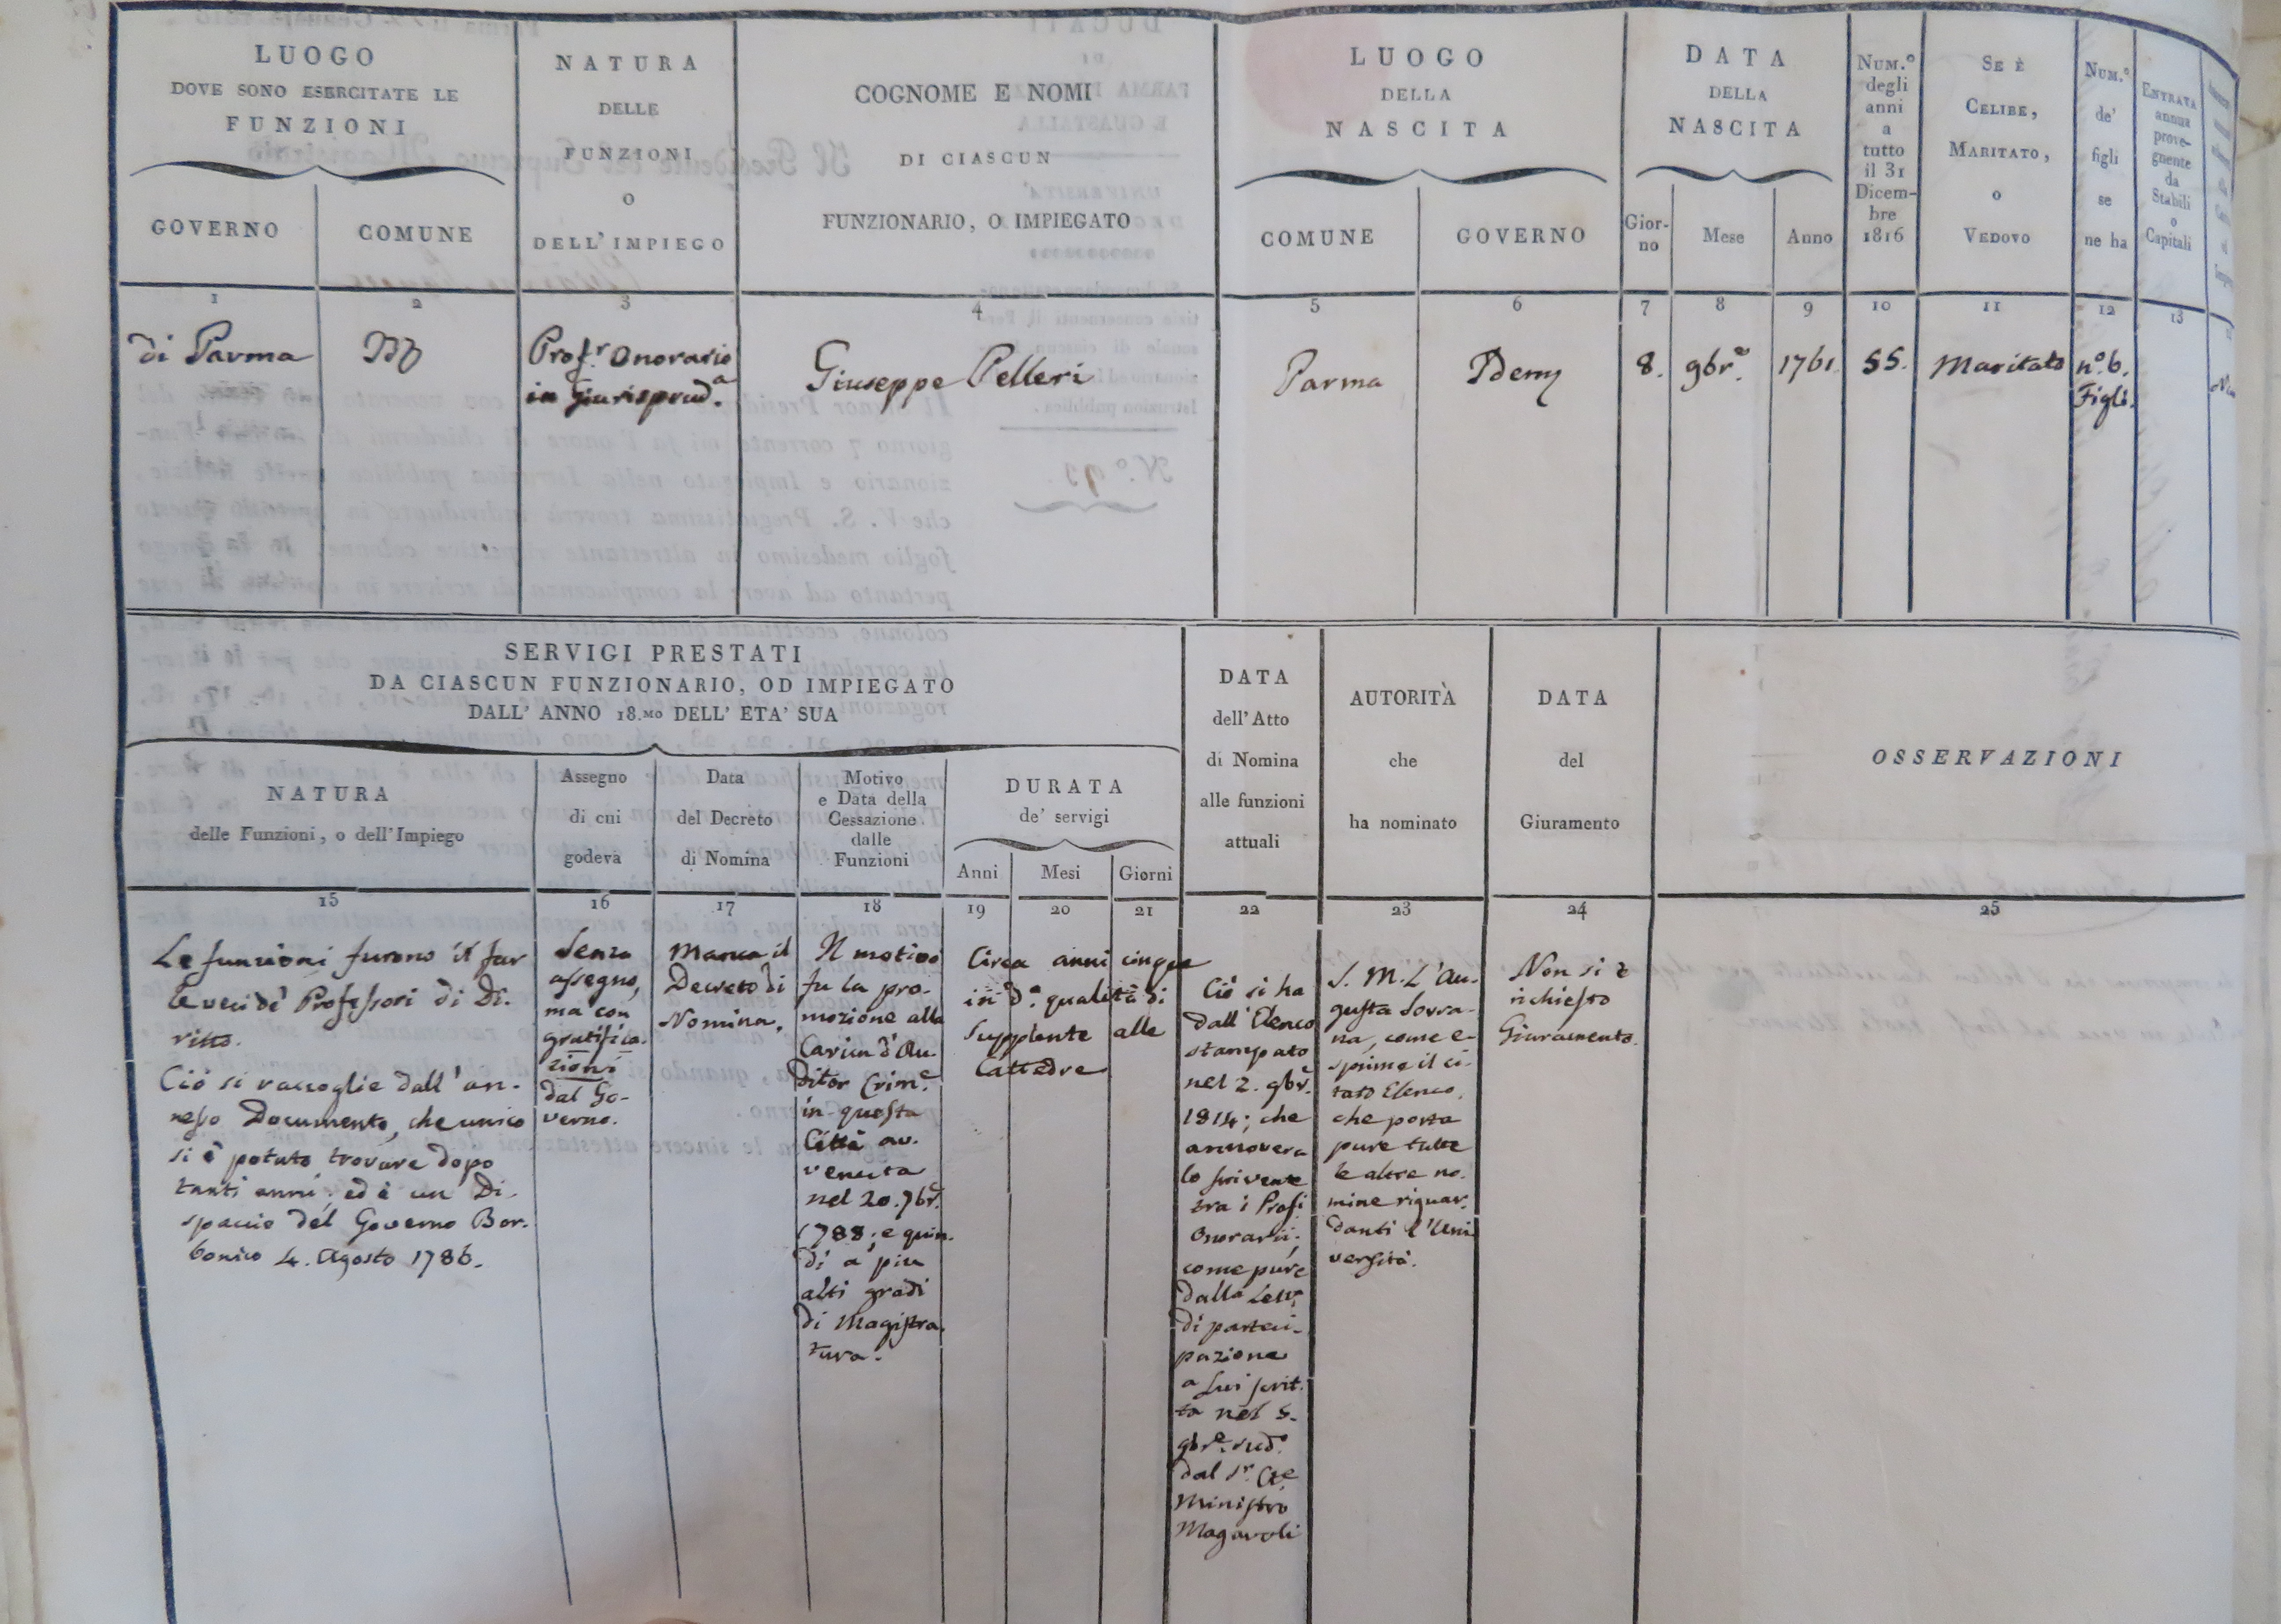 LUOGO
DOVE SONO ESERCITATE LE
FUNZIONI
GOVERNO
COMUNE
NATURA
DELLE
FUNZIONI
O
DELL'IMPIEGO
COGNOME E NOMI
DI CIASCUN
FUNZIONARIO, O IMPIEGATO
LUOGO
DELLA
NASCITA
COMUNE
GOVERNO
DATA
DELLA
NASCITA
Gior-
no
Mese
Anno
NUM.º
degli
anni
a
tutto
il 31
Dicem-
bre
1816
SE È
CELIBE,
MARITATO,
O
VEDOVO
NUM.º
de'
figli
se
ne ha
ENTRATA
annua
prove-
gnente
da
Stabili
o
Capitali
1
2
3
4
5
6
7
8
9
10
11
12
13
di Parma
Prof.r Onorario
in Giurisprud.a
Giuseppe Pelleri
Parma
Idem
8.
9bre.
1761
55.
Maritato
nº. 6.
Figli.
SERVIGI PRESTATI
DA CIASCUN FUNZIONARIO, OD IMPIEGATO
DALL' ANNO 18.MO DELL' ETA' SUA
NATURA
delle Funzioni, o dell'Impiego
Assegno
di cui
godeva
Data
del Decreto
di Nomina
Motivo
e Data della
Cessazione
dalle
Funzioni
DURATA
de' servigi
Anni
Mesi
Giorni
DATA
dell'Atto
di Nomina
alle funzioni
attuali
AUTORITÀ
che
ha nominato
DATA
del
Giuramento
OSSERVAZIONI
15
16
17
18
19
20
21
22
23
24
25
Le funzioni furono il far
le veci de' Professori di Di-
ritto.
Ciò si raccoglie dall'an-
nesso Documento, che unico
si è potuto trovare dopo
tanti anni; ed è un Di-
spaccio del Governo Bor-
bonico 4. Agosto 1786.
Senza
assegno,
ma con
gratifica-
zioni
dal Go-
verno.
Manca il
Decreto di
Nomina.
Il motivo
fu la pro-
mozione alla
Carica d'Au-
ditor Crim.e
in questa
Città av-
venuta
nel 20. 7bre.
1788; e quin-
di a più
alti gradi
di Magistra-
tura.
Circa anni cinque
in d.a qualità di
Supplente alle
Cattedre
Ciò si ha
dall'Elenco
stampato
nel 2. 9bre.
1814; che
annovera
lo scrivente
tra i Prof.i
Onorarii;
come pure
dalla Lett.a
di parteci-
pazione
a Lui scrit-
ta nel 5.
9bre. sud.o
dal S.r C.te
Ministro
Magawli
S. M. L'Au-
gusta Sovra-
na, come e-
sprime il ci-
tato Elenco,
che porta
pure tutte
le altre no-
mine riguar-
danti l'Uni
versità.
Non si è
richiesto
Giuramento.